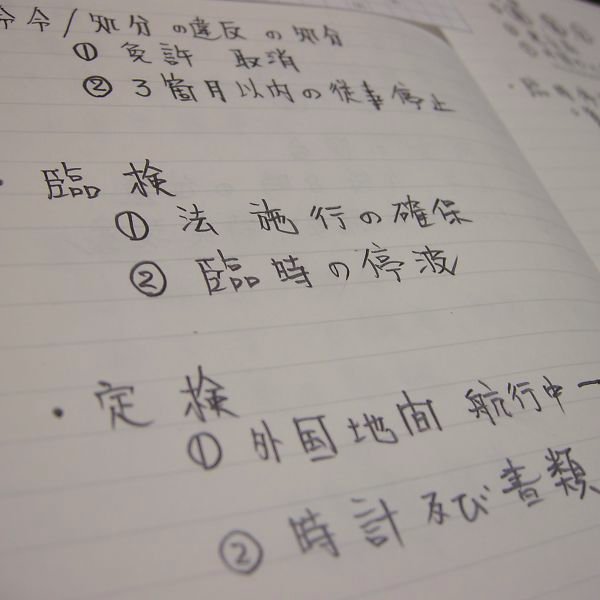 令/処分の違反の処分
① 免許 取消
② 3箇月以内の従事停止
・臨検
① 法 施行の確保
② 臨時の停波
・定検
① 外国地間 航行中
② 時計及び書類